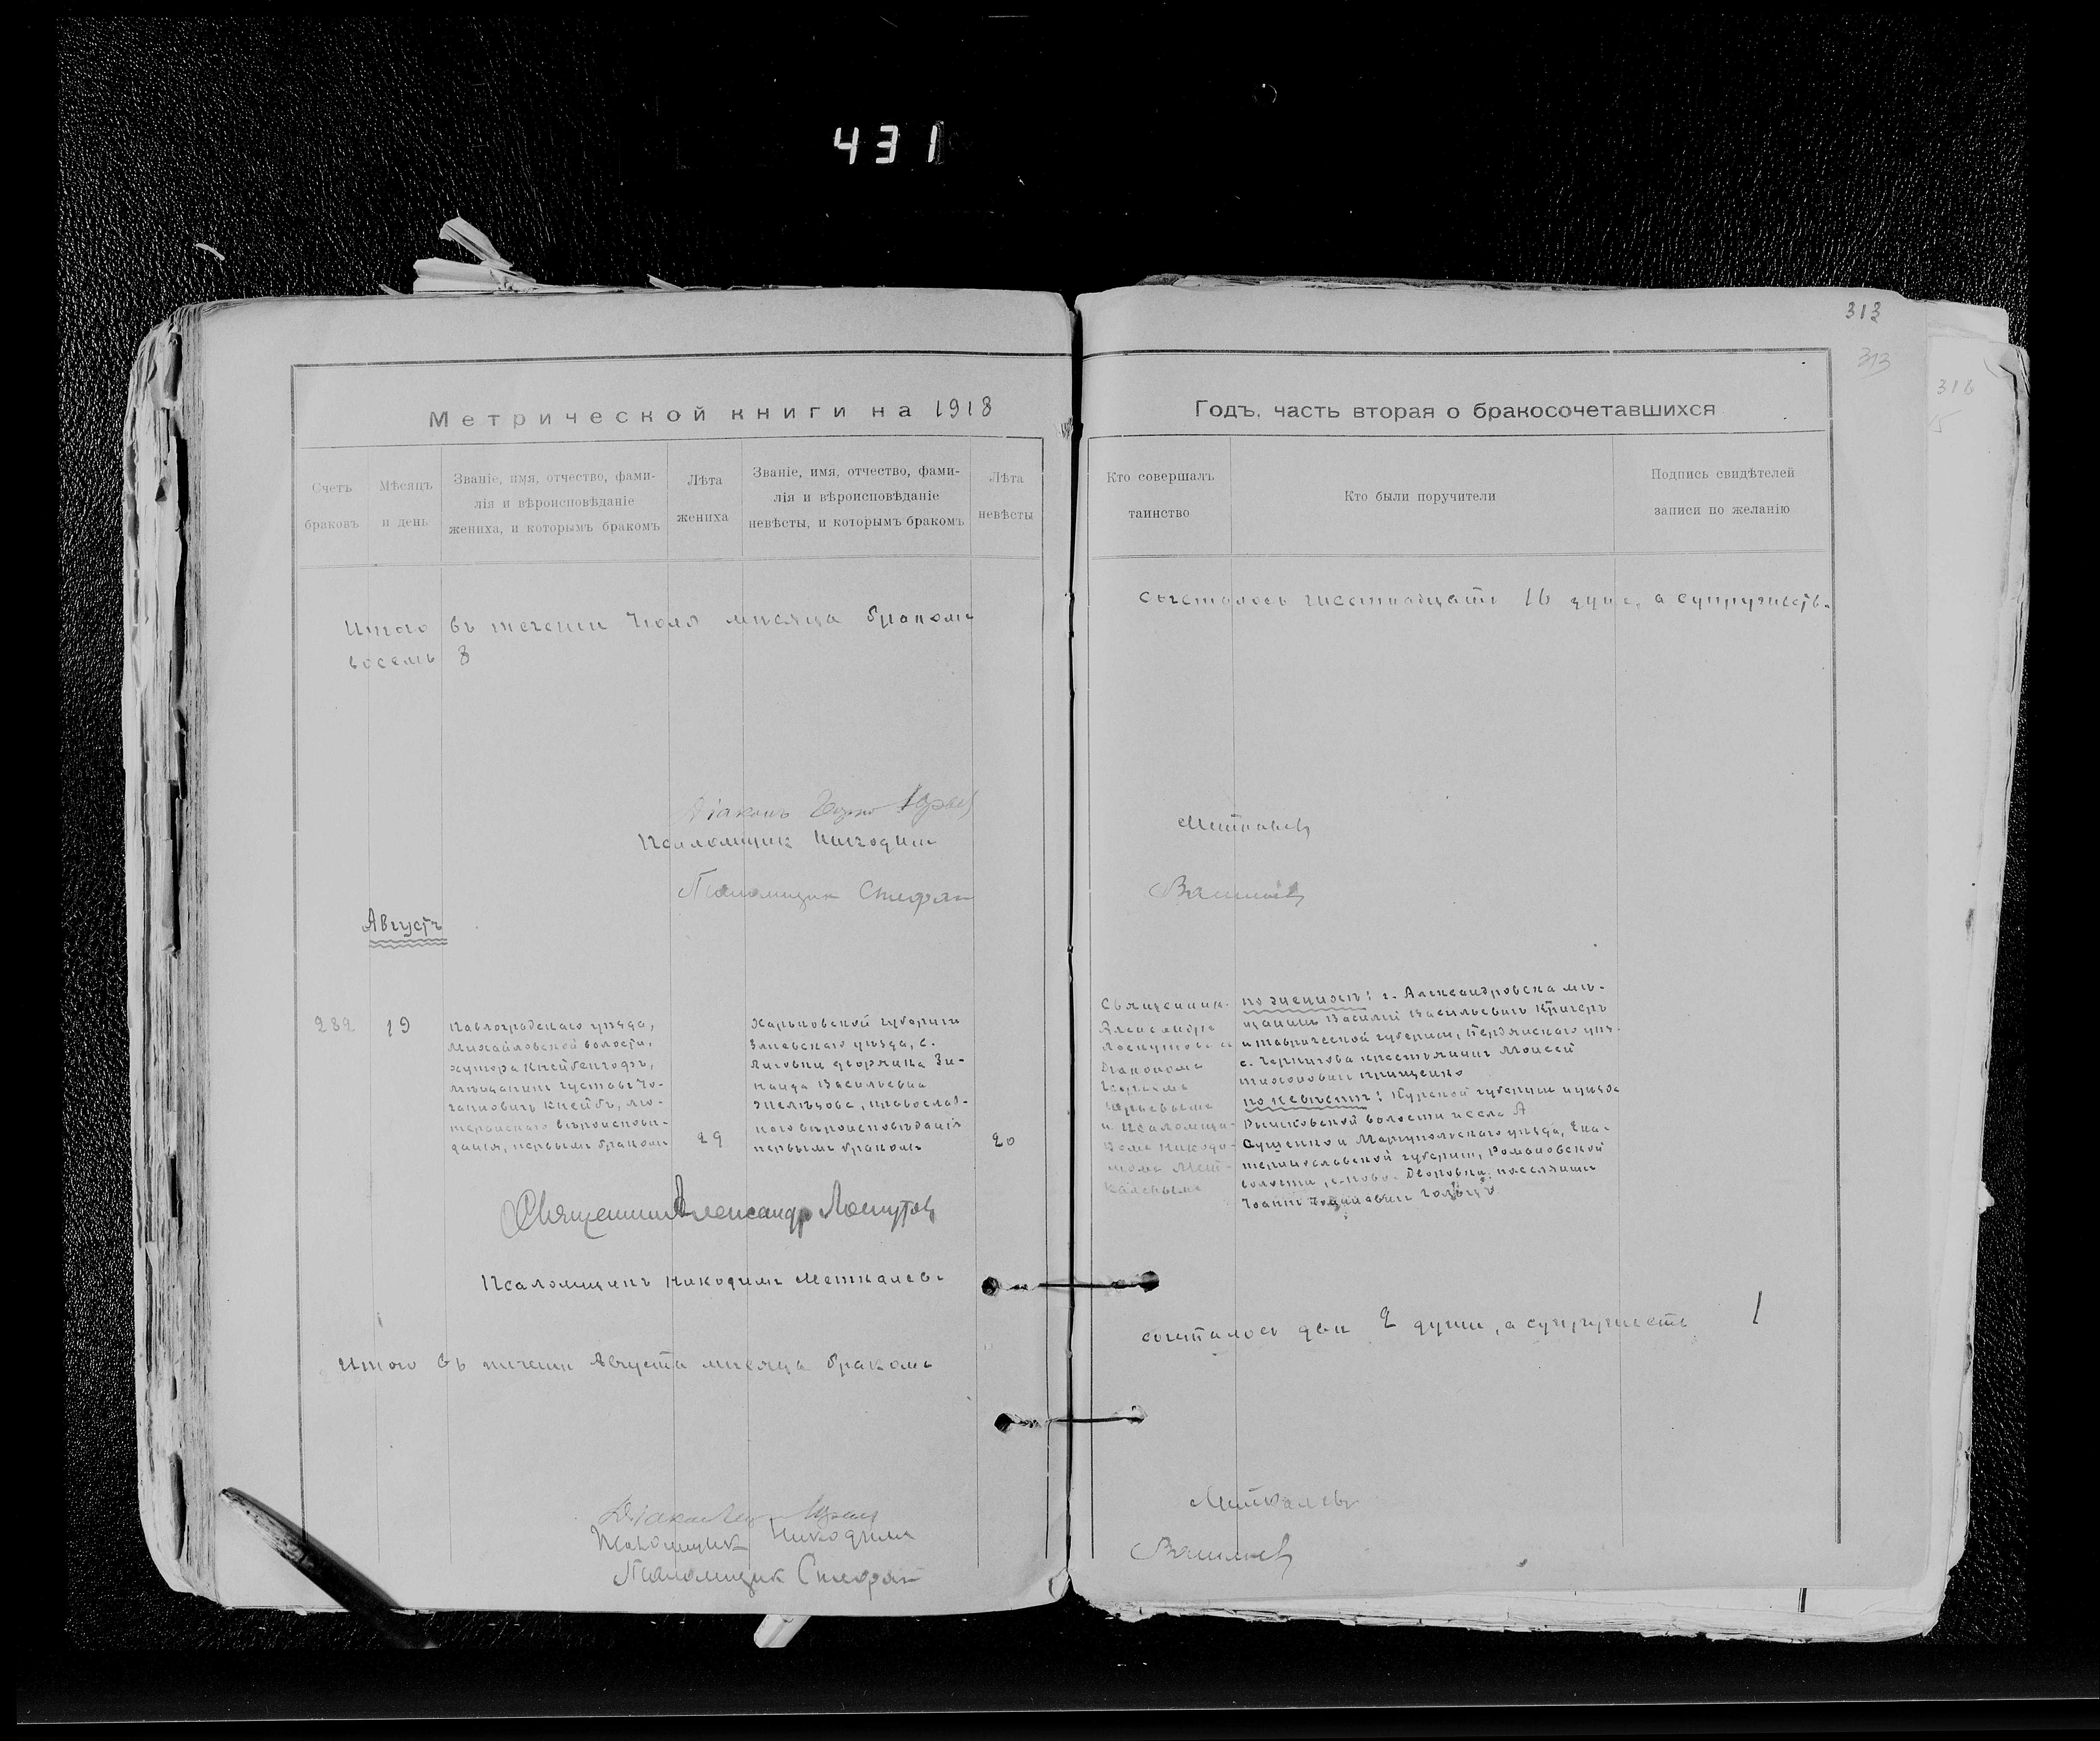 431
313
313
316
15
Метрической книги на 1918
Годъ, часть вторая о бракосочетавшихся
Счетъ браковъ
Мѣсяцъ и день
Званіе, имя, отчество, фами-
лія и вѣроисповѣданіе
жениха, и которымъ бракомъ
Лѣта жениха
Званіе, имя, отчество, фами-
лія и вѣроисповѣданіе
невѣсты, и которымъ бракомъ
Лѣта невѣсты
Кто совершалъ таинство
Кто были поручители
Подпись свидѣтелей
записи по желанію
Итого въ теченіи Іюля мѣсяца бракомъ
восемь 8
сочеталось шестнадцать 16 душъ, а супружествъ
Діаконъ
Псаломщик Никодим
Меткалевъ
Псаломщик Стефан
Васильев
Августъ
282
19
Павлоградскаго уѣзда,
Михайловской волости,
хутора Кнейбенгофъ,
мѣщанинъ Густавъ Іо-
ганновичъ Кнейбъ, лю-
теранскаго вѣроисповѣ-
данія, первымъ бракомъ
29
Харьковской губерніи
Зміевскаго уѣзда, с.
Лиговки дворянка Зи-
наида Васильевна
православ-
наго вѣроисповѣданія
первымъ бракомъ
20
Священник
Александръ
Лоскутовъ и
Діакономъ
Юрьевымъ
и Псаломщи-
комъ Никоди-
момъ Мет-
калевымъ
по женихѣ: г. Александровска мѣ-
щанинъ Василій Васильевичъ Кригеръ
и Таврической губерніи, Бердянскаго уѣз.
с. Чернигова крестьянинъ Моисей
Тихоновичъ Грищенко
по невѣстѣ: Курской губерніи и уѣзда
волости и села А
Сущенко и Маріупольскаго уѣзда, Ека-
теринославской губерніи, Романовской
волости, с. Ново-Дворовка, поселянинъ
Іоаннъ
Священникъ Александр Лоскутов
Псаломщикъ Никодимъ Меткалевъ
Итого въ теченіи Августа мѣсяца бракомъ
сочеталось двѣ 2 души, а супружествъ 1
Діакон
Псаломщик Никодим
Меткалевъ
Псаломщик Стефан
Васильев